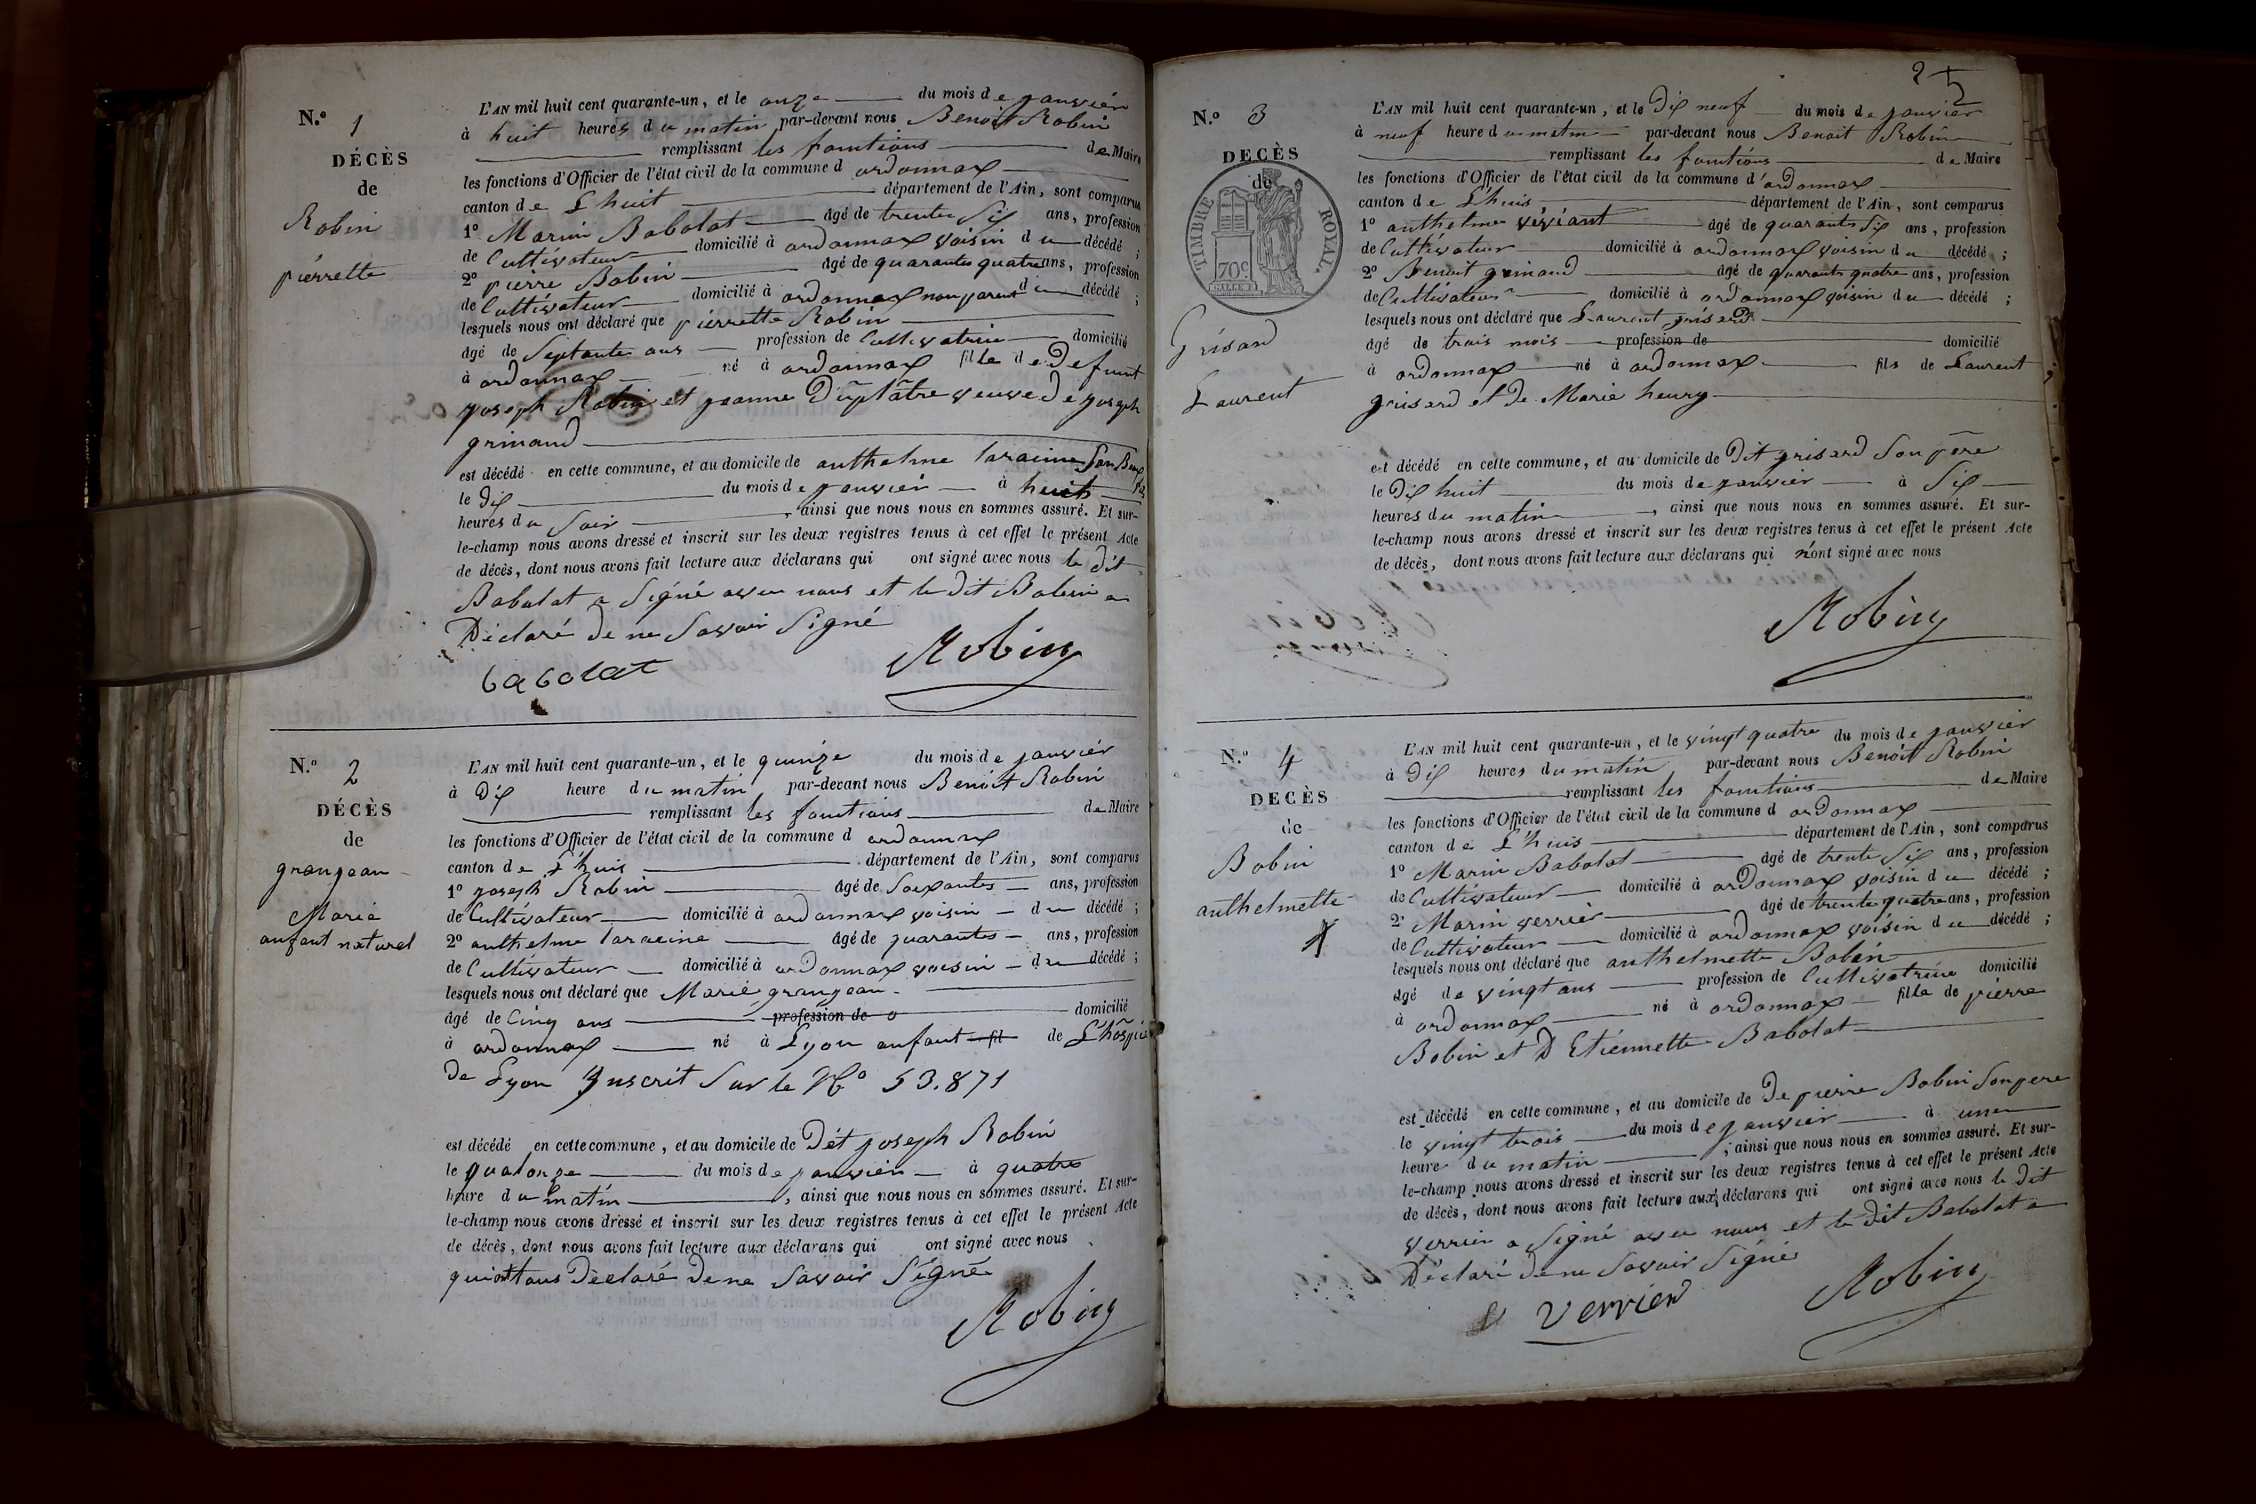 N.o 1
DÉCÈS
de
Robin
pierrette
L'AN mil huit cent quarante-un, et le onze du mois de janvier
à huit heures du matin par-devant nous Benoit Robin
remplissant les fonctions de Maire
les fonctions d'Officier de l'état civil de la commune d ordonnax
canton de Lhuit département de l'Ain, sont comparus
1o Marin Babolat âgé de trente Six ans, profession
de Cultivateur domicilié à ordonnax voisin du décédé ;
2o pierre Bobin âgé de quarante quatre ans, profession
de Cultivateur domicilié à ordonnax non parent du décédé ;
lesquels nous ont déclaré que pierrette Robin
âgé de Septante ans profession de Cultivatrice domicilié
à ordonnax né à ordonnax fille de Defunt
joseph Robin et jeanne Duplâtre veuve De joseph
grinand
est décédé en cette commune, et au domicile de anthelme laracine Son Beau
le Dix du mois de janvier à huit
heures du Soir, ainsi que nous nous en sommes assuré. Et sur-
le-champ nous avons dressé et inscrit sur les deux registres tenus à cet effet le présent Acte
de décès, dont nous avons fait lecture aux déclarans qui ont signé avec nous le dit
Babolat a Signé avec nous et le dit Bobin a
Déclaré De ne Savoir Signé
babolat Robin
N.o 2
DÉCÈS
de
granjean
Marie
enfant naturel
L'AN mil huit cent quarante-un, et le quinze du mois de janvier
à Dix heure du matin par-devant nous Benoit Robin
remplissant les fonctions de Maire
les fonctions d'Officier de l'état civil de la commune d ordonnax
canton de L'huis département de l'Ain, sont comparus
1o joseph Robin âgé de Soixante ans, profession
de Cultivateur domicilié à ordonnax voisin du décédé ;
2o anthelme laracine âgé de quarante ans, profession
de Cultivateur domicilié à ordonnax voisin du décédé ;
lesquels nous ont déclaré que Marie granjean
âgé de Cinq ans profession de domicilié
à ordonnax né à Lyon enfant fil de L'hôspice
De Lyon Inscrit Sur le No 53.871
est décédé en cette commune, et au domicile de Dit joseph Robin
le quatorze du mois de janvier à quatre
heure du matin, ainsi que nous nous en sommes assuré. Et sur-
le-champ nous avons dressé et inscrit sur les deux registres tenus à cet effet le présent Acte
de décès, dont nous avons fait lecture aux déclarans qui ont signé avec nous
qui ont tous Déclaré De ne Savoir Signé
Robin
N.o 3
DECÈS
de
TIMBRE ROYAL
70c
Grisard
Laurent
L'AN mil huit cent quarante-un, et le Dix neuf du mois de janvier
à neuf heure du matin par-devant nous Benoit Robin
remplissant les fonctions de Maire
les fonctions d'Officier de l'état civil de la commune d'ordonnax
canton de L'huis département de l'Ain, sont comparus
1o anthelme viviant âgé de quarante Six ans, profession
de Cultivateur domicilié à ordonnax voisin du décédé ;
2o Benoit grinand âgé de quarante quatre ans, profession
de Cultivateur domicilié à ordonnax voisin du décédé ;
lesquels nous ont déclaré que Laurent grisard
âgé de trois mois profession de domicilié
à ordonnax né à ordonnax fils de Laurent
grisard et De Marie heury
est décédé en cette commune, et au domicile de Dit grisard Son père
le Dix huit du mois de janvier à Six
heures du matin, ainsi que nous nous en sommes assuré. Et sur-
le-champ nous avons dressé et inscrit sur les deux registres tenus à cet effet le présent Acte
de décès, dont nous avons fait lecture aux déclarans qui n'ont signé avec nous
Robin
N.o 4
DECÈS
de
Bobin
anthelmette
L'AN mil huit cent quarante-un, et le vingt quatre du mois de janvier
à Dix heures du matin par-devant nous Benoit Robin
remplissant les fonctions de Maire
les fonctions d'Officier de l'état civil de la commune d ordonnax
canton de L'huis département de l'Ain, sont comparus
1o Marin Babolat âgé de trente Six ans, profession
de Cultivateur domicilié à ordonnax voisin du décédé ;
2o Marin verrier âgé de trente quatre ans, profession
de Cultivateur domicilié à ordonnax voisin du décédé ;
lesquels nous ont déclaré que anthelmette Bobin
âgé de vingt ans profession de Cultivatrice domicilié
à ordonnax né à ordonnax fille de pierre
Bobin et D Etiennette Babolat
est décédé en cette commune, et au domicile de De pierre Bobin Son pere
le vingt trois du mois de janvier à une
heure du matin ; ainsi que nous nous en sommes assuré. Et sur-
le-champ nous avons dressé et inscrit sur les deux registres tenus à cet effet le présent Acte
de décès, dont nous avons fait lecture aux déclarans qui ont signé avec nous le Dit
verrier a Signé avec nous et le Dit Babolat a
Déclaré De ne Savoir Signé
verrier Robin